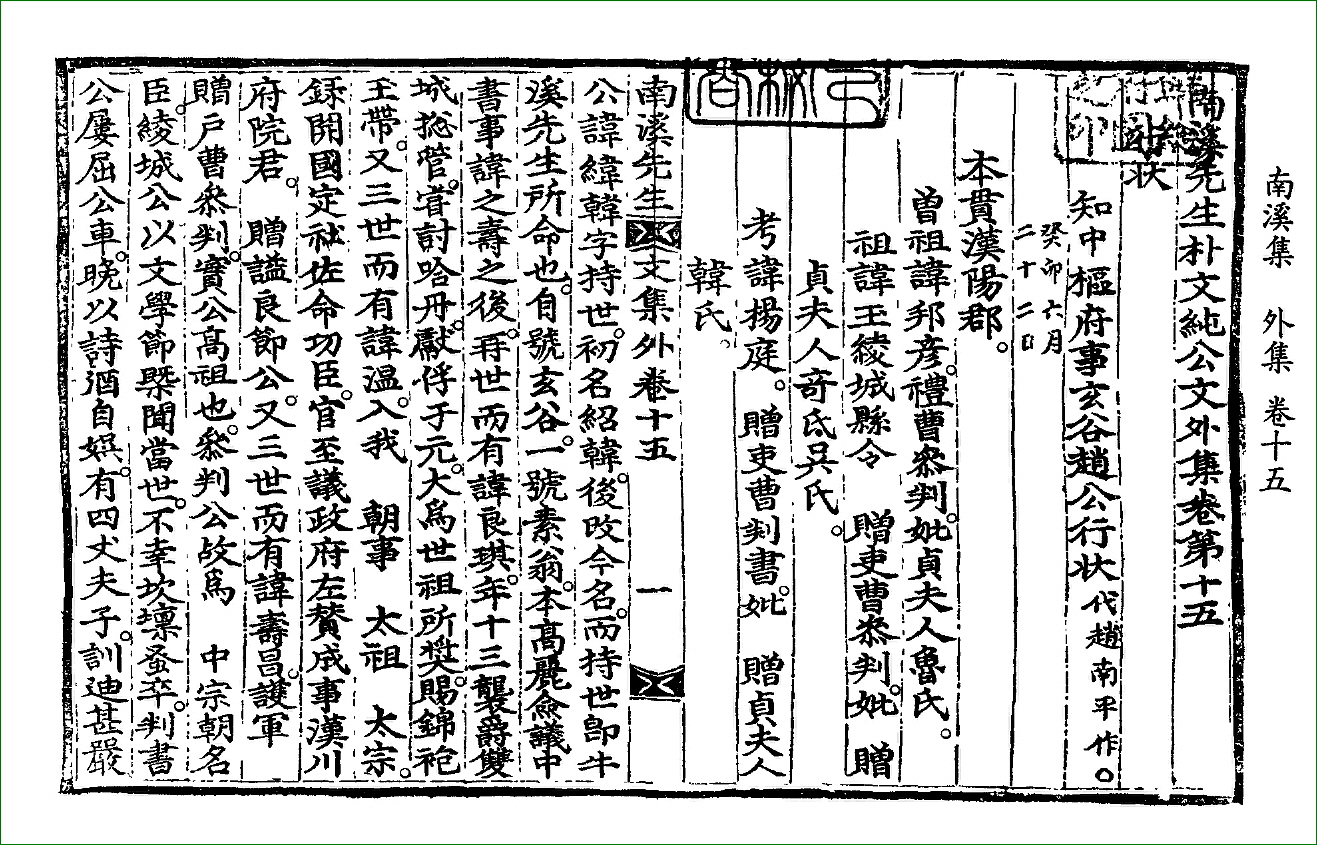 南溪集 外集 卷十五
南溪先生朴文純公文外集卷第十五
行狀
知中樞府事玄谷趙公行狀 代趙南平作○
癸卯六月
二十二日
本貫漢陽郡。
曾祖諱邦彦。禮曹參判。妣貞夫人魯氏。
祖諱玉。綾城縣令 贈吏曹參判。妣 贈
貞夫人奇氏，吳氏。
考諱揚庭。 贈吏曹判書。妣 贈貞夫人
韓氏。
南溪先生 文集外卷十五 一
公諱緯韓字持世。初名紹韓。後改今名。而持世卽牛
溪先生所命也。自號玄谷。一號素翁。本高麗僉議中
書事諱之壽之後。再世而有諱良琪。年十三襲爵雙
城摠管。甞討哈丹。獻俘于元。大爲世祖所奬。賜錦袍
玉帶。又三世而有諱温。入我 朝事 太祖 太宗。
録開國定社佐命功臣。官至議政府左賛成事漢川
府院君。 贈謚良節公。又三世而有諱壽昌。護軍
贈戶曹參判。實公高祖也。參判公故爲 中宗朝名
臣。綾城公以文學節槩聞當世。不幸坎壈蚤卒。判書
公屢屈公車。晩以詩酒自娛。有四丈夫子。訓迪甚嚴